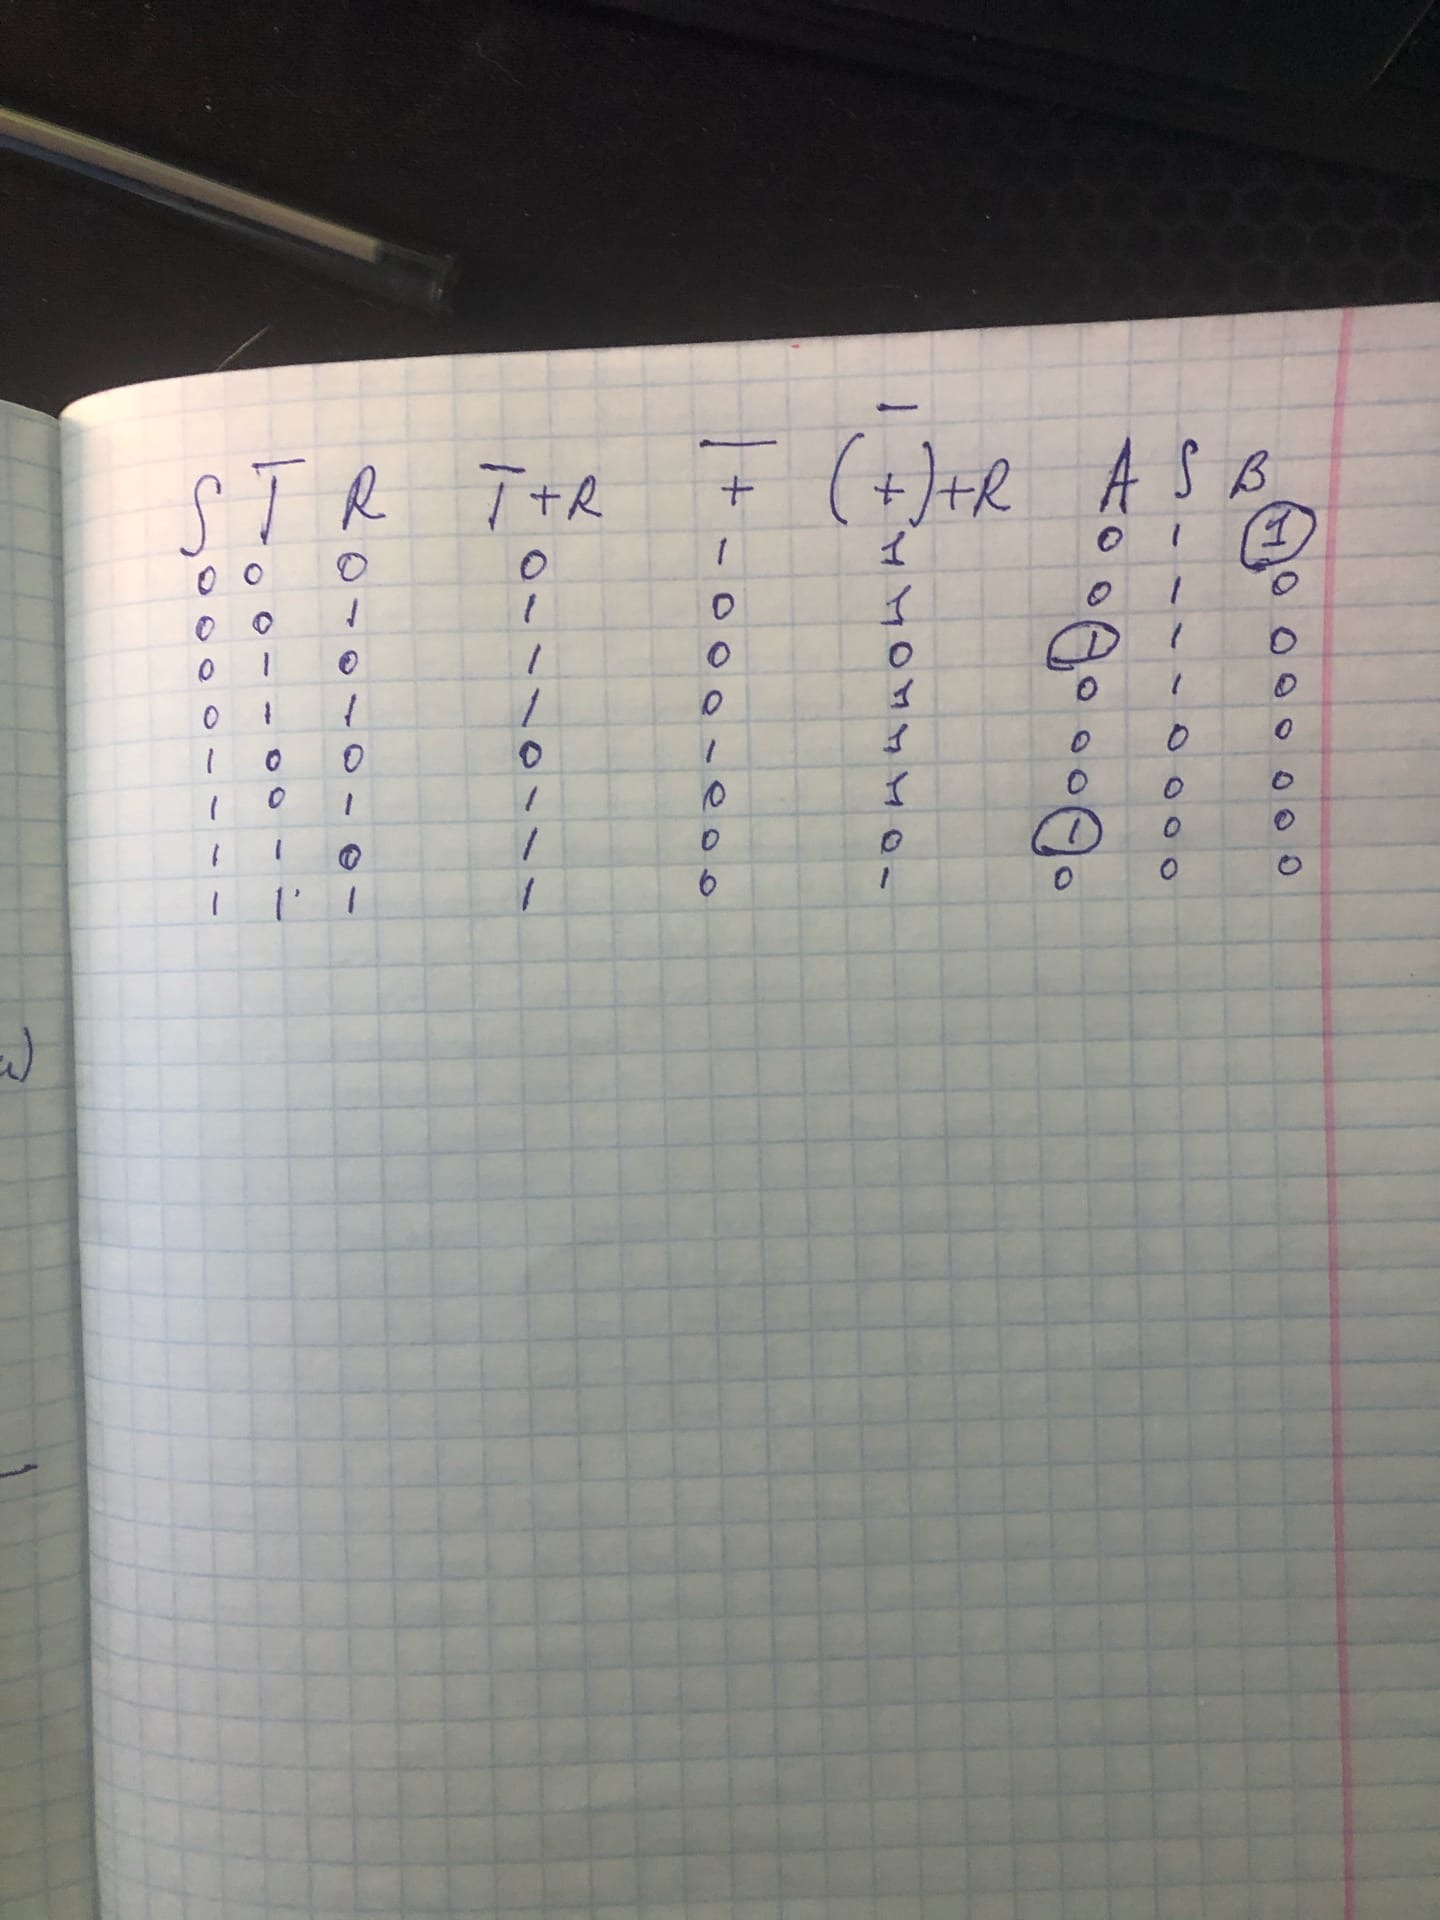 S T̅ R T̅+R +̅ (+̅)+R A S B
0 0 0 0 1 1 0 1 1
0 0 1 1 0 1 0 1 0
0 1 0 1 0 0 1 1 0
0 1 1 1 0 1 0 1 0
1 0 0 0 1 1 0 0 0
1 0 1 1 0 1 0 0 0
1 1 0 1 0 0 1 0 0
1 1 1 1 0 1 0 0 0